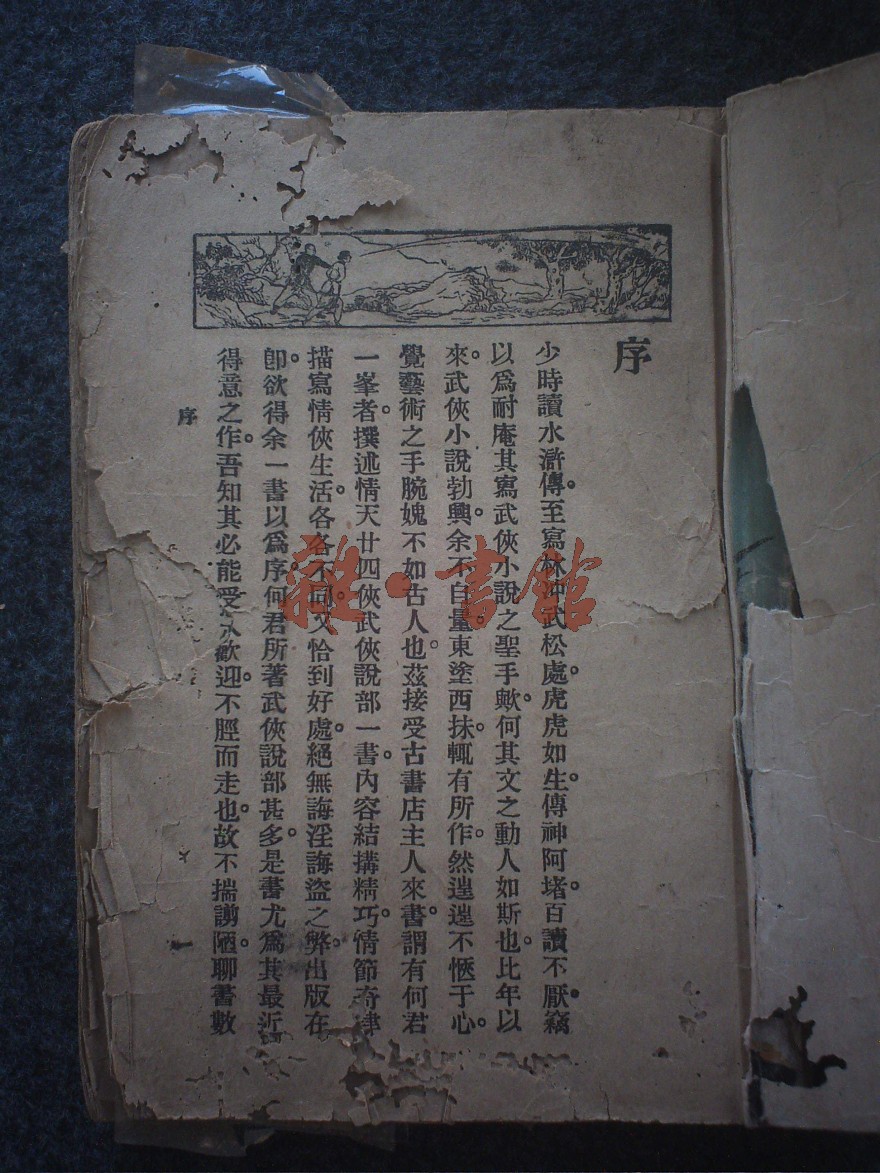 序
少時讀水滸傳。至寫林冲武松處。虎虎如生。傳神阿堵。百讀不厭。竊
以爲耐庵其寫武俠小說之聖手歟。何其文之動人如斯也。比年以
來。武俠小說勃興。余不自量。東塗西抹。輒有所作。然遑遑不愜于心。
覺藝術之手腕媿不如古人也。茲接受古書店主人來書。謂有何君
一峯者。撰述情天廿四俠武俠說部一書。內容結搆精巧。情節奇
描寫情俠生活。各各不同。又恰到好處。絕無誨淫誨盜之弊。出版在
卽。欲得余一書以爲序。何君所著武俠說部甚多。是書尤爲其最近
得意之作。吾知其必能受人歡迎。不脛而走也。故不揣謭陋。聊書數
序
一
雜·書館